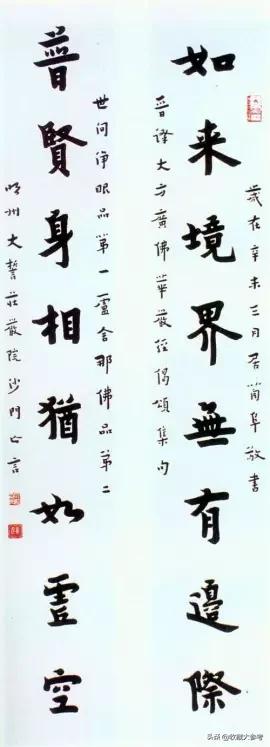 歲在辛未三月居蘭阜敬書
如来境界無有邊際
晉譯大方廣佛華嚴經偈頌集句
世間淨眼品第一盧舍那佛品第二
普賢身相猶如虛空
明州大誓莊嚴院沙門亡言
头条@收藏大参考